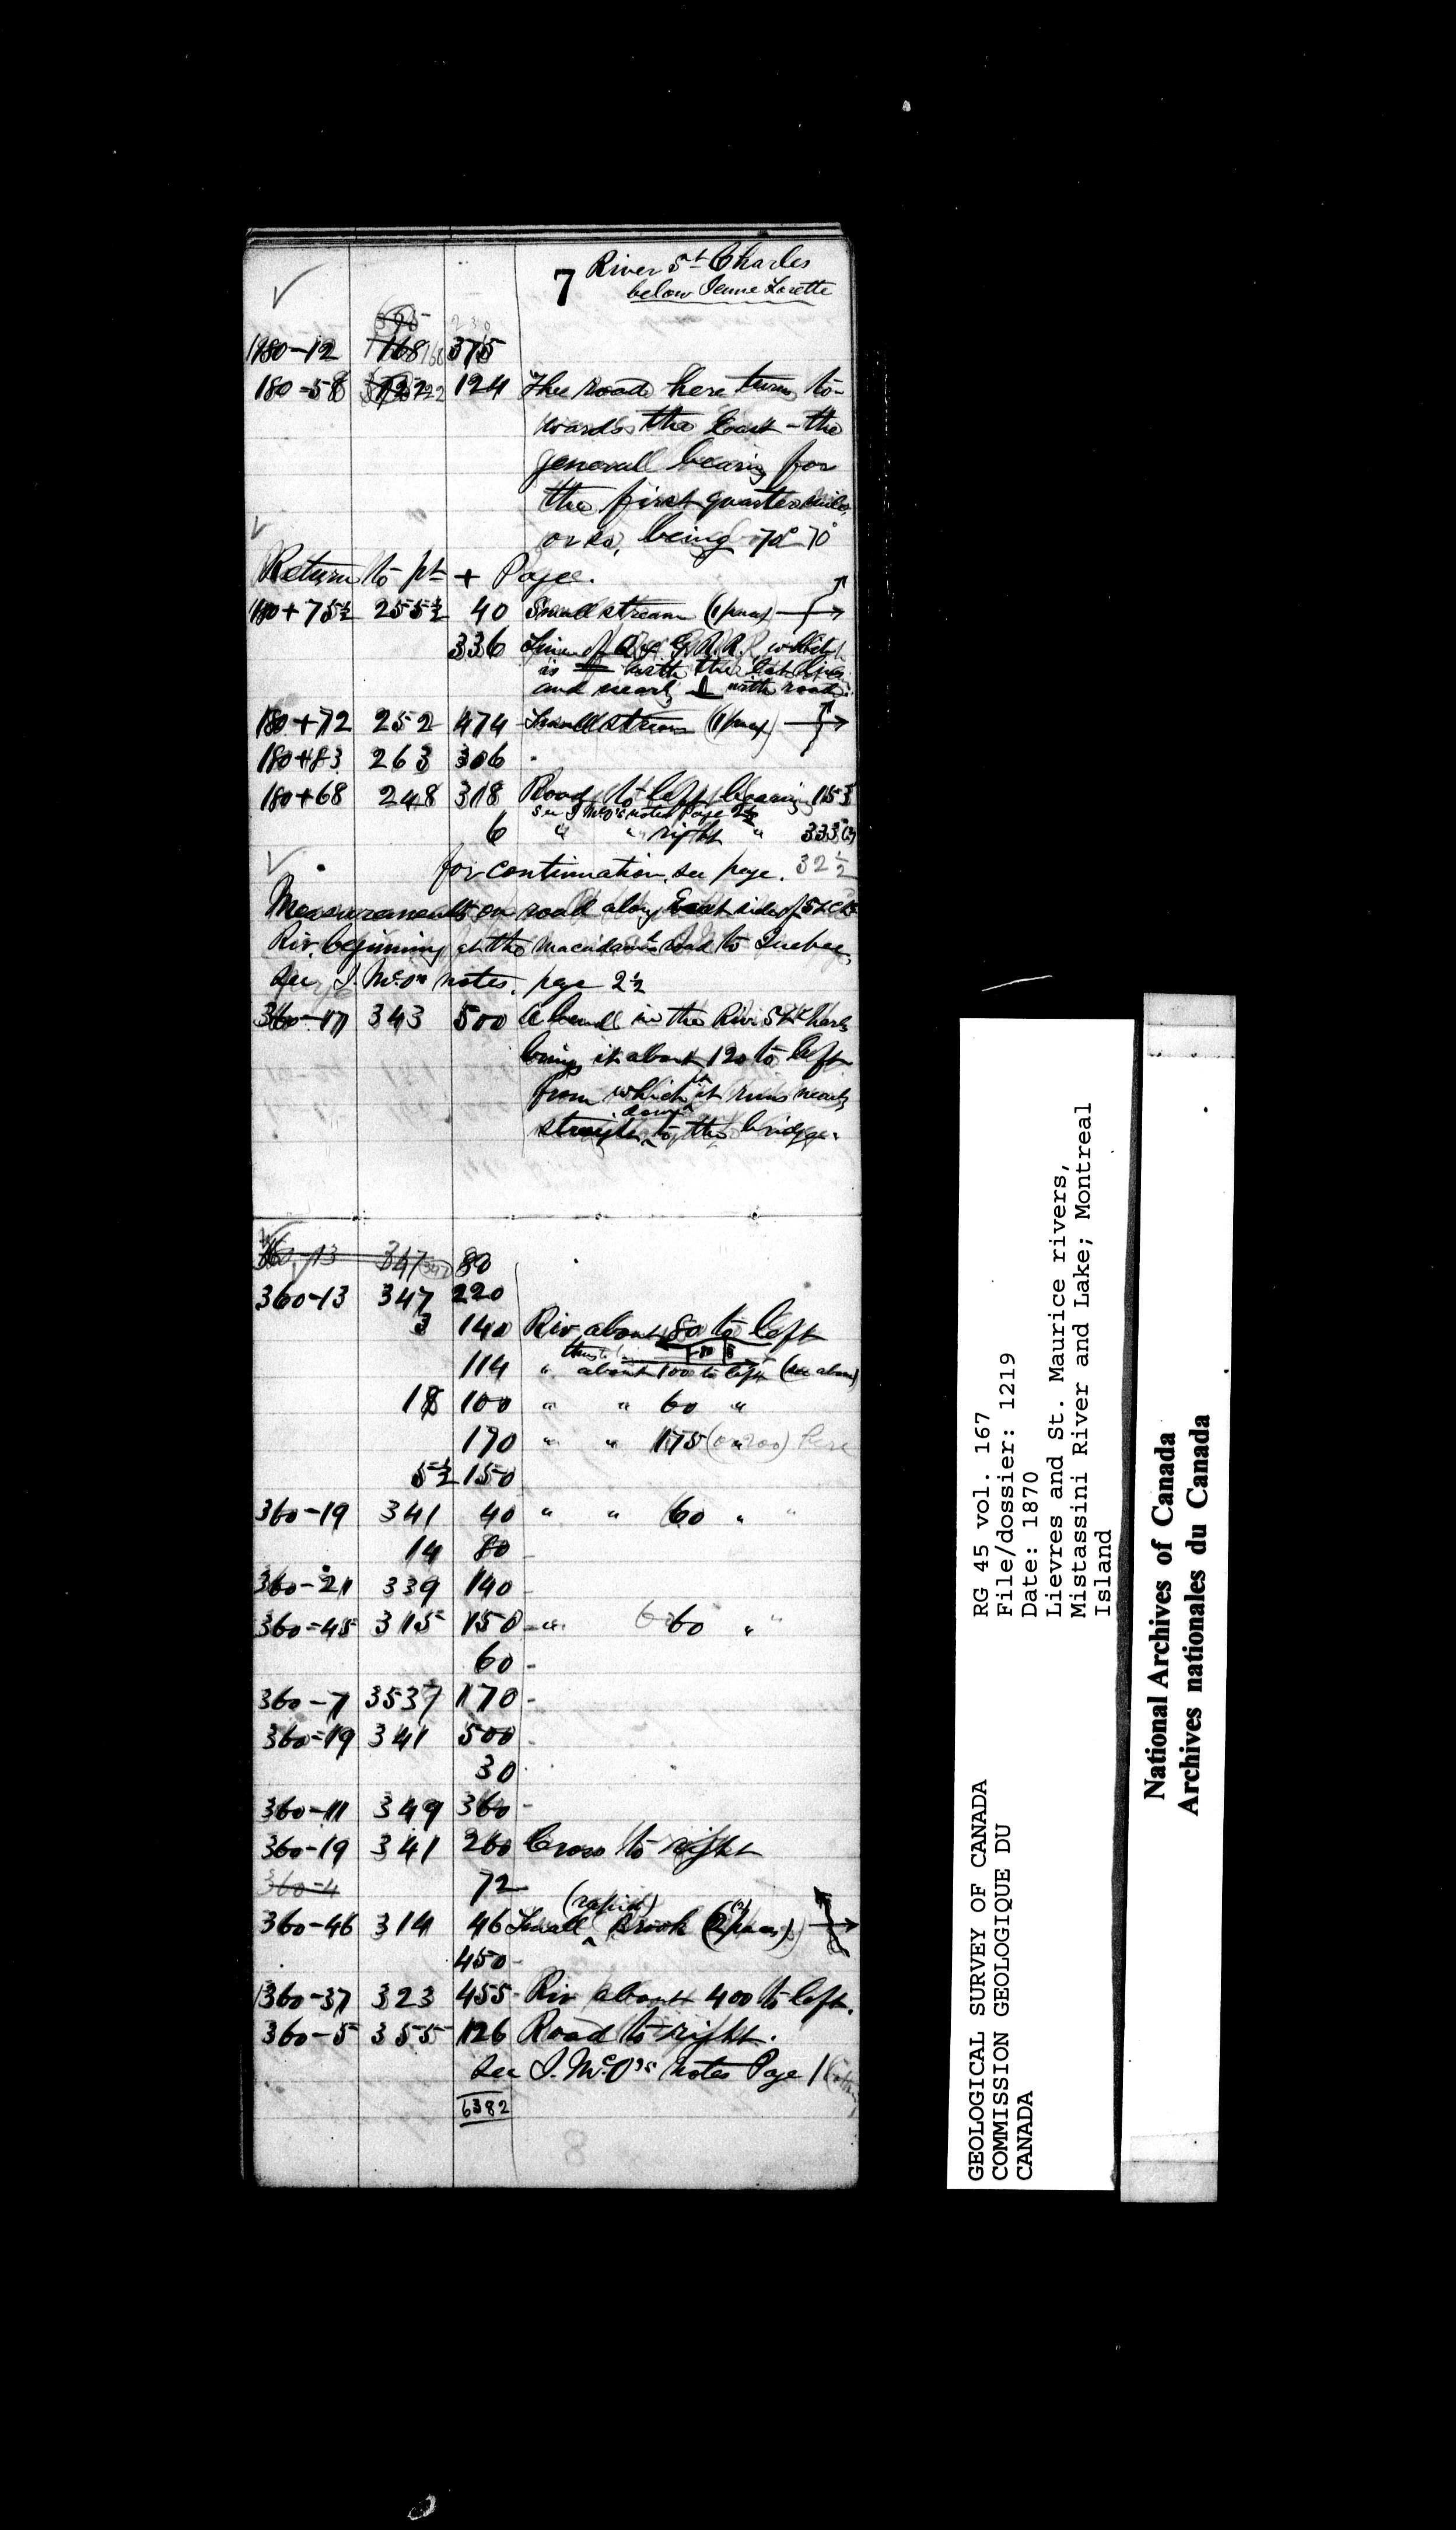 7 River St Charles
below Jeune Lorette
180-12 168 375
180-58 122 124 The road here turns to-
wards the East - the
generall bearing for
the first quarter mile
or so, being 70° 70°
Return to pt + Page.
180+75½ 255½ 40 Small stream (1 pace)
336 Line of Q & G R.R. which
is with the
and nearly ⊥ with road
180+72 252 474 Small stream (1 pace)
180+83 263 306
180+68 248 318 Road to left bearing 153
see J McO's notes Page 2½
6 " " right " 333
for continuation see page. 32½
Measurements on road along East side of St Chs
Riv. beginning at the macadamd road to Quebec,
see J. McOs notes. page 2½
360-17 343 500 A bend in the Riv St Charls
brings it about 120 to left
from which pt it runs nearly
straight down to the bridge.
360-13 347 80
360-13 347 220
3 140 Riv about 80 to left
114 " about 100 to left (see above)
18 100 " " 60 "
170 " " 175 (or 200) here
5½ 150
360-19 341 40 " " 60 " "
14 80
360-21 339 140
360-45 315 150 " 60 " "
60
360-7 353 170
360-19 341 500
30
360-11 349 360
360-19 341 260 Cross to right
360-4 72
360-46 314 46 Small (rapid) Brook (2 paces)
450
360-37 323 455 Riv about 400 to left.
360-5 355 126 Road to right.
see J. McO's notes Page 1
6382
8
GEOLOGICAL SURVEY OF CANADA
COMMISSION GEOLOGIQUE DU
CANADA
RG 45 vol. 167
File/dossier: 1219
Date: 1870
Lievres and St. Maurice rivers,
Mistassini River and Lake; Montreal
Island
National Archives of Canada
Archives nationales du Canada